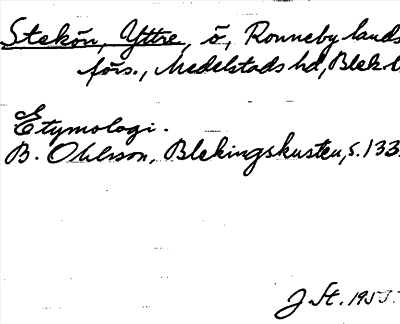 Stekön, Yttre, ö, Ronneby lands
förs., Medelstads hd, Blek. l
Etymologi.
B. Ohlsson, Blekingskusten, s. 133.
J. St. 1955.